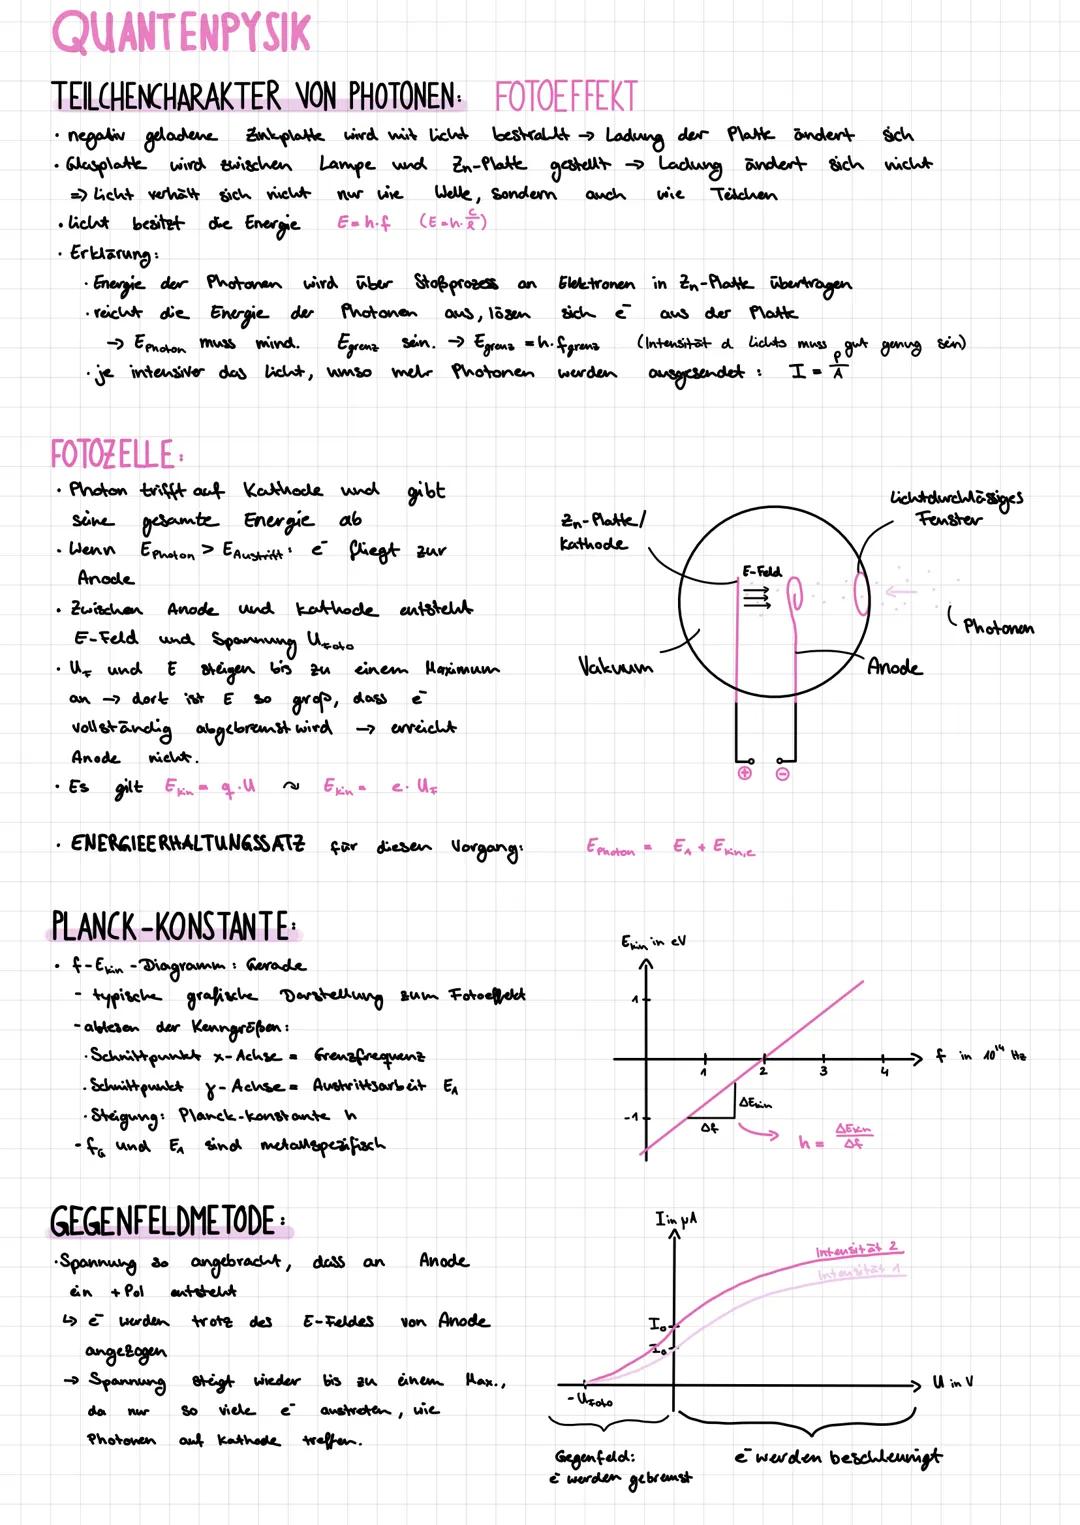 QUANTENPYSIK
TEILCHENCHARAKTER VON PHOTONEN: FOTOEFFEKT
· negativ geladene Zinkplatte wird mit Licht bestrahlt → Ladung der Platte ändert sich
· Glasplatte wird zwischen Lampe und Zn-Platte gestellt → Ladung ändert sich nicht
⇒ Licht verhält sich nicht nur wie Welle, sondern auch wie Teilchen
· Licht besitzt die Energie E = h·f (E = h·c/λ)
· Erklärung:
· Energie der Photonen wird über Stoßprozess an Elektronen in Zn-Platte übertragen
· reicht die Energie der Photonen aus, lösen sich e⁻ aus der Platte
→ E_Photon muss mind. E_grenz sein. → E_grenz = h·f_grenz (Intensität d Lichts muss gut genug sein)
· je intensiver das Licht, umso mehr Photonen werden ausgesendet: I = P/A
FOTOZELLE:
· Photon trifft auf Kathode und gibt
seine gesamte Energie ab
· Wenn E_Photon > E_Austritt: e⁻ fliegt zur
Anode
· Zwischen Anode und Kathode entsteht
E-Feld und Spannung U_Foto
· U_F und E steigen bis zu einem Maximum
an → dort ist E so groß, dass e⁻
vollständig abgebremst wird → erreicht
Anode nicht.
· Es gilt E_kin = q·U ~ E_kin = e·U_F
Zn-Platte/
Kathode
Lichtdurchlässiges
Fenster
E-Feld
Photonen
Vakuum
Anode
+ −
· ENERGIEERHALTUNGSSATZ für diesen Vorgang: E_Photon = E_A + E_kin,e
PLANCK-KONSTANTE:
· f-E_kin-Diagramm: Gerade
- typische grafische Darstellung zum Fotoeffekt
- ablesen der Kenngrößen:
· Schnittpunkt x-Achse = Grenzfrequenz
· Schnittpunkt y-Achse = Austrittsarbeit E_A
· Steigung: Planck-Konstante h
- f_G und E_A sind metallspezifisch
E_kin in eV
1
1 2 3 4
f in 10¹⁴ Hz
-1
ΔE_kin
Δf
h = ΔE_kin/Δf
GEGENFELDMETODE:
· Spannung so angebracht, dass an Anode
ein + Pol entsteht
↳ e⁻ werden trotz des E-Feldes von Anode
angezogen
→ Spannung steigt wieder bis zu einem Max.,
da nur so viele e⁻ austreten, wie
Photonen auf Kathode treffen.
I in μA
Intensität 2
Intensität 1
I₀
I₀
-U_Foto
U in V
Gegenfeld:
e⁻ werden gebremst
e⁻ werden beschleunigt